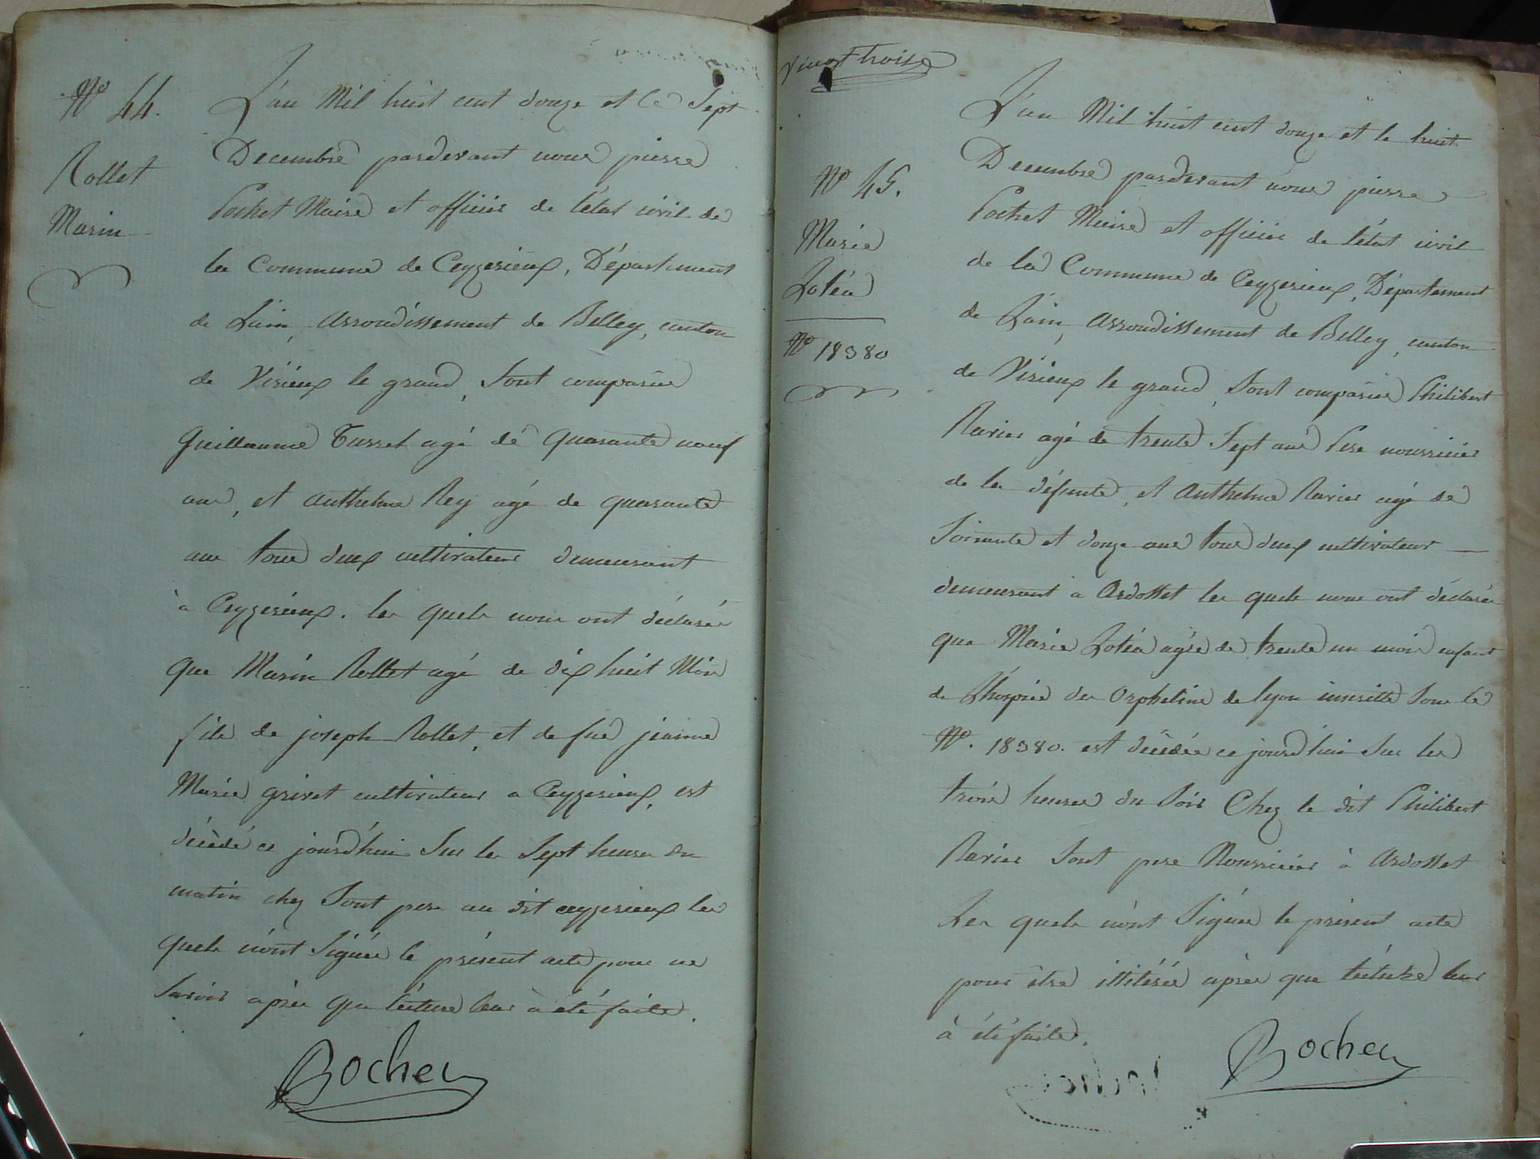 No 44.
Rollet
Marin
L'an Mil huit cent douze et le Sept
Decembre pardevant nous pierre
Pochet Maire et officier de l'état civil de
la Commune de Ceyzerieux, Département
de L'ain, Arrondissement de Belley, canton
de Virieux le grand, Sont comparus
Guillaume Turrel agé de quarante neuf
ans, et Anthelme Rey agé de quarante
ans tous deux cultivateurs demeurant
à Ceyzerieux. les quels nous ont déclarés
que Marin Rollet agé de dix huit Mois
fils de joseph Rollet, et de fue jeanne
Marie grivet cultivateur a Ceyzerieux, est
décédé ce jourd'hui Sur les Sept heures du
matin chez Sont pere au dit ceyzerieux les
quels n'ont Signés le présent acte pour ne
Savoir après que lecture leur à été faite.
Bochet
Vingt trois
No 45.
Marie
Loléa
No 18380
L'an Mil huit cent douze et le huit
Decembre pardevant nous pierre
Pochet Maire et officier de l'état civil
de la Commune de Ceyzerieux, Département
de L'ain, Arrondissement de Belley, canton
de Virieux le grand, Sont comparus Philibert
Ravier agé de trente Sept ans Pere nourricier
de la défunte, et Anthelme Ravier agé de
Soixante et douze ans tous deux cultivateurs
demeurant a Ardosset les quels nous ont déclarés
que Marie Loléa agée de trente un mois enfant
de L'hospice des Orphelins de lyon inscritte Sous le
No. 18380. est décédée ce jourd'hui Sur les
trois heures du Soir Chez le dit Philibert
Ravier Sont pere Nourricier à Ardosset
Les quels n'ont Signés le présent acte
pour être illitérés après que lecture leur
à été faite.
Bochet